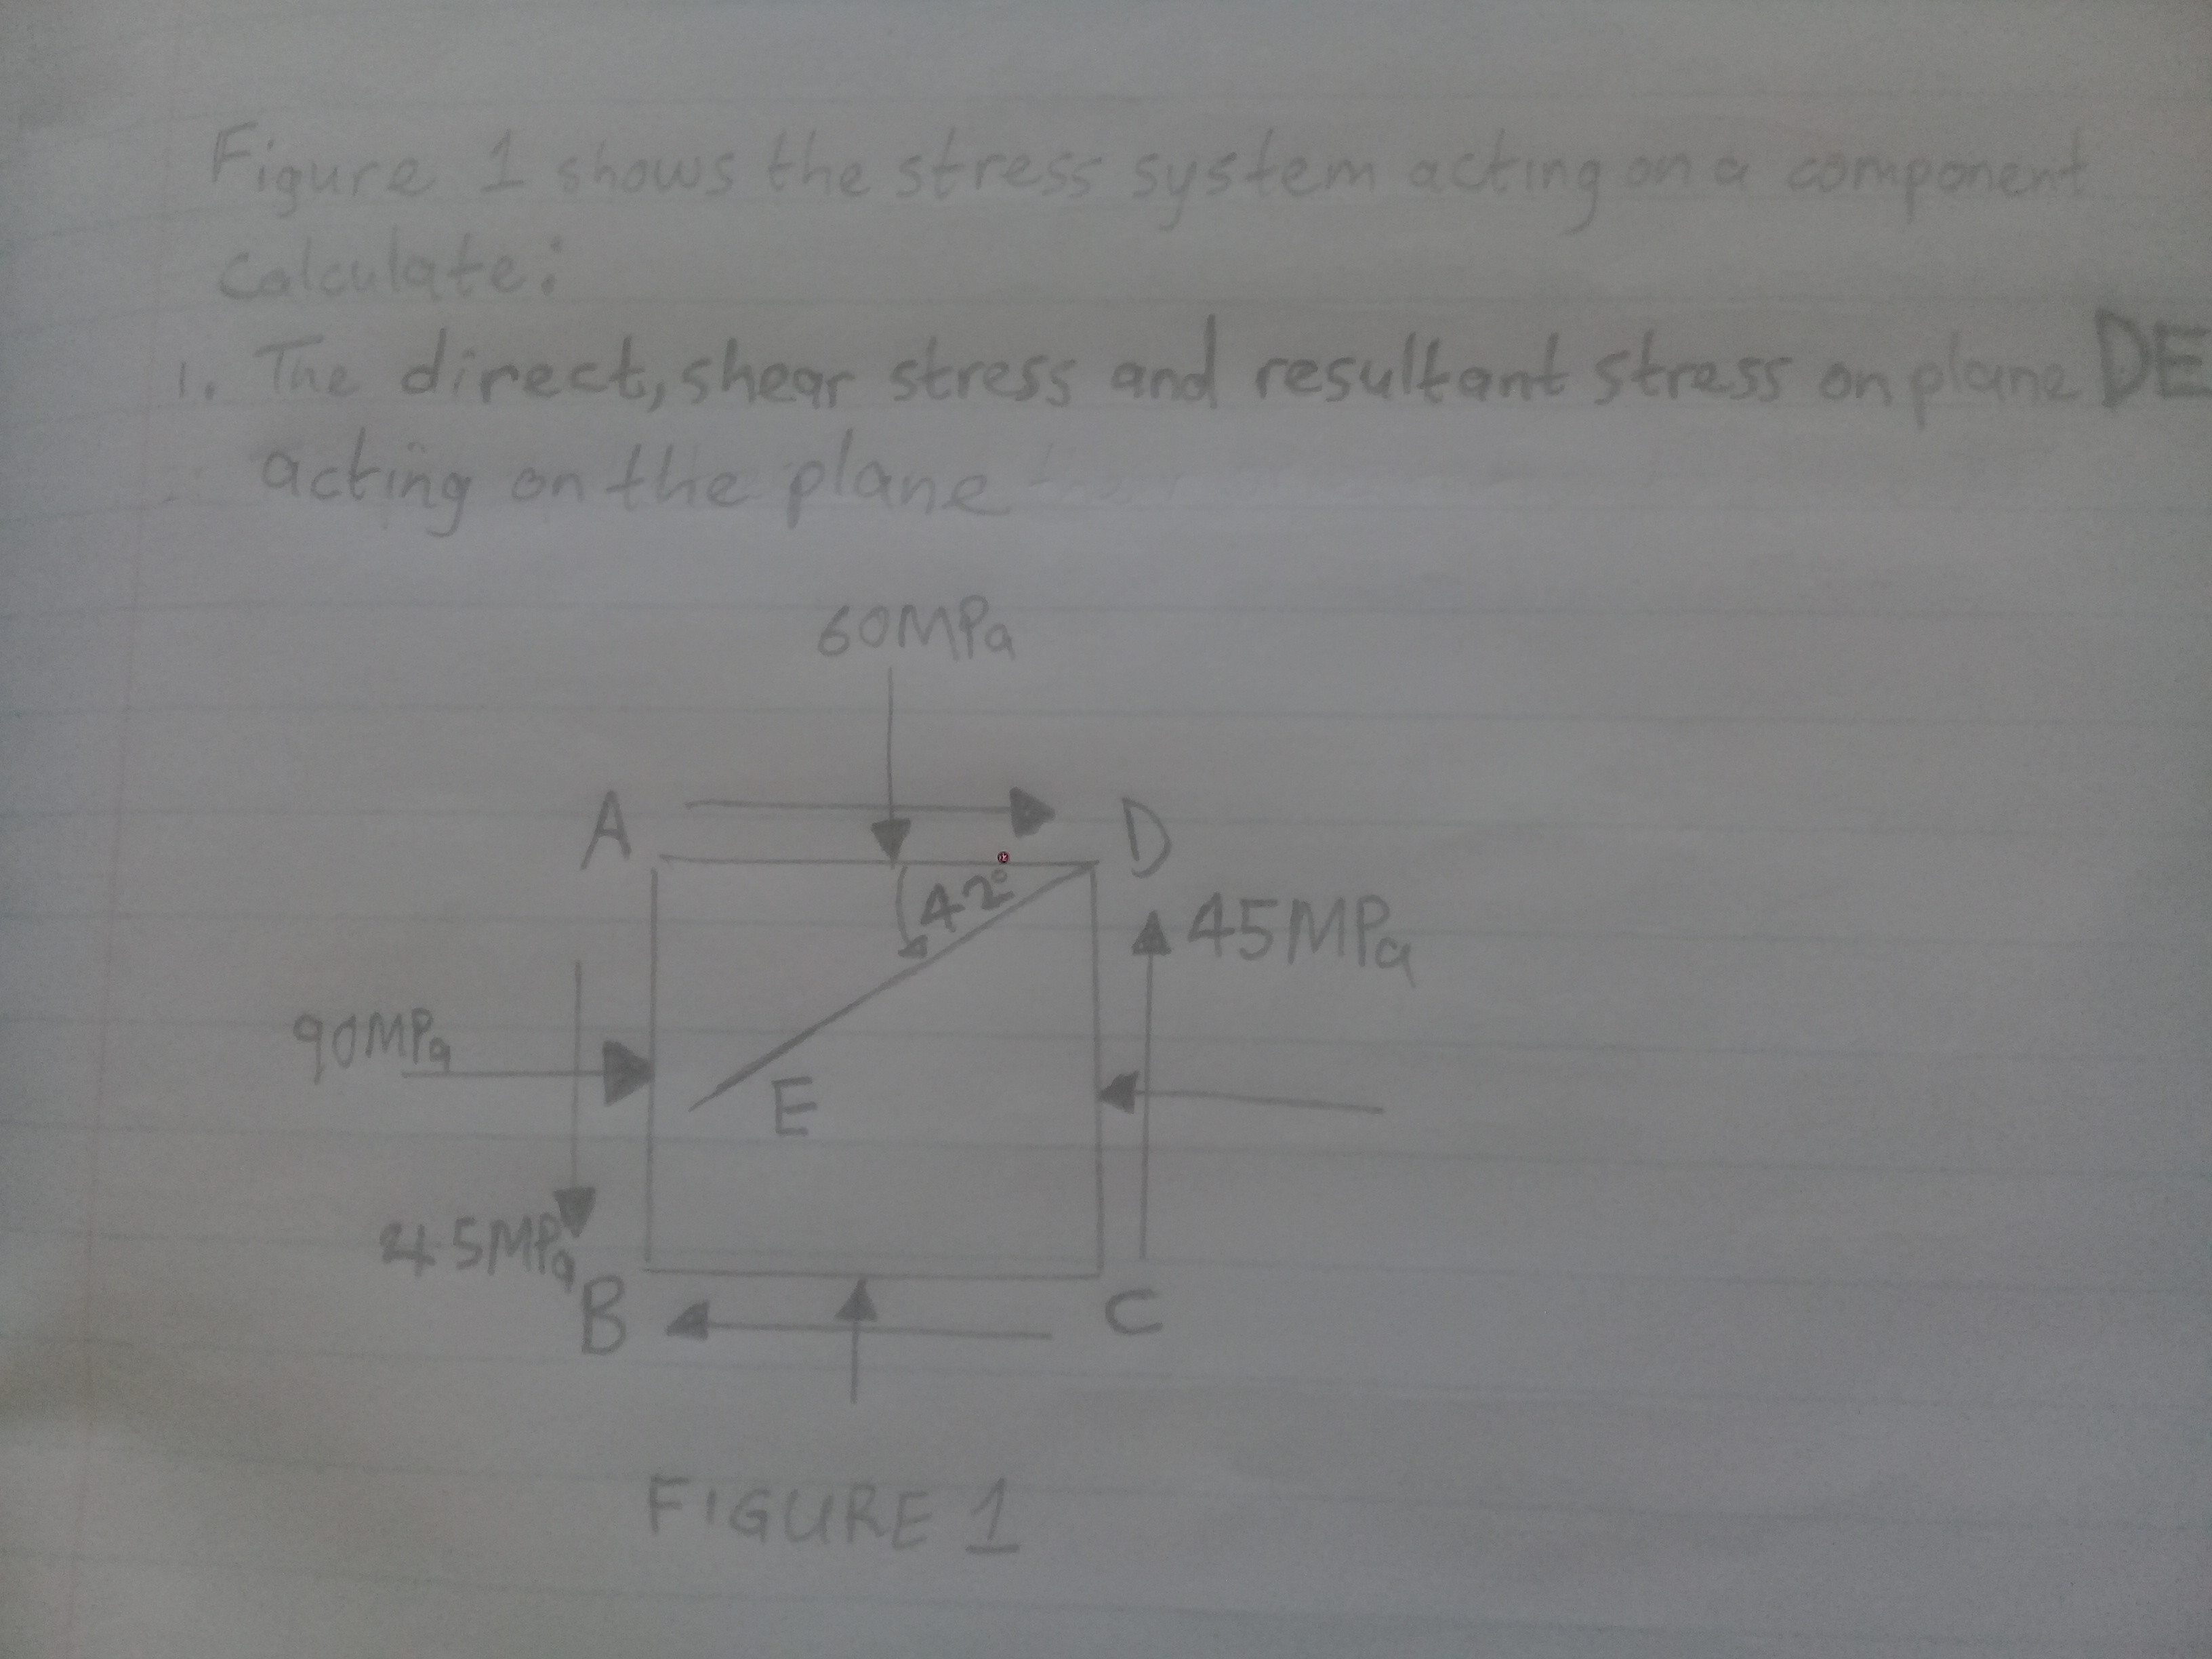 Figure 1 shows the stress system acting on a component
calculate:
1. The direct, shear stress and resultant stress on plane DE
acting on the plane
60MPa
A
D
42°
45MPa
90MPa
E
45MPa
B
C
FIGURE 1